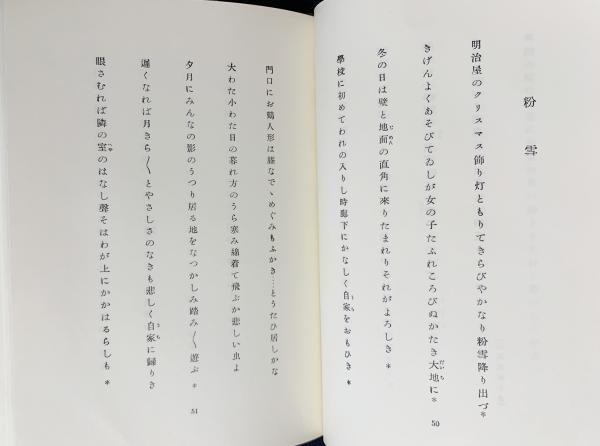 粉雪
明治屋のクリスマス飾り灯ともりてきらびやかなり粉雪降り出づ*
きげんよくあそびてゐしが女の子たふれころびぬかたき大地に*
だいち
冬の日は壁と地面の直角に来りたまれりそれがよろしき *
ぢめん
學校に初めてわれの入りし時廊下にかなしく自家をおもひき *
うち
50
門口にお鶴人形は膝なでゝめぐみもふかき…とうたひ居しかな
大わた小わた日の暮れ方のうら寒み綿着て飛ぶか悲しい虫よ
夕月にみんなの影のうつり居る地をなつかしみ踏み〳〵遊ぶ *
遅くなれば月きら〳〵とやさしさのなきも悲しく自家に歸りき
うち
眼さむれば隣の室のはなし聲そはわが上にかかはるらしも *
51